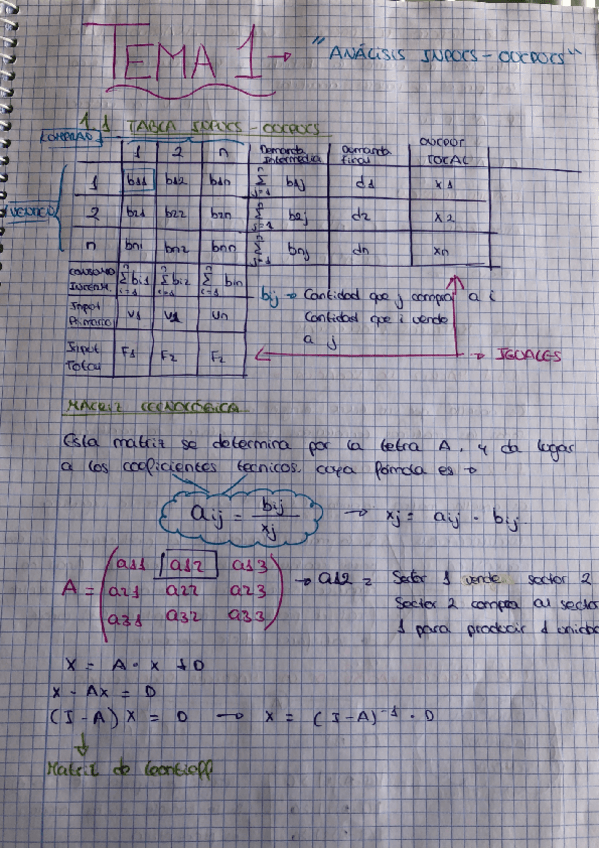 TEMA 1 → "ANÁLISIS INPUTS-OUTPUTS"
1.1 TABLA INPUTS-OUTPUTS
COMPRAS
1 2 n Demanda Intermedia Demanda final OUTPUT TOTAL
VENTAS
1 b11 b12 b1n ∑ⁿj=1 b1j d1 x1
2 b21 b22 b2n ∑ⁿj=1 b2j d2 x2
n bn1 bn2 bnn ∑ⁿj=1 bnj dn xn
CONSUMO INTERM. ∑ⁿi=1 bi1 ∑ⁿi=1 bi2 ∑ⁿi=1 bin
Input Primario V1 V2 Vn
Input Total F1 F2 F2
bij → Cantidad que j compra a i
Cantidad que i vende
a j
→ IGUALES
MATRIZ TECNOLÓGICA
Esta matriz se determina por la letra A, y da lugar
a los coeficientes tecnicos. cuya fórmula es →
aij = bij / xj → xj = aij · bij
A = ( a11 a12 a13
a21 a22 a23
a31 a32 a33 )
→ a12 = Sector 1 vende sector 2
Sector 2 compra al sector
1 para producir 1 unidad
X = A · x + D
x - Ax = D
(I - A) X = D → x = (I - A)⁻¹ · D
Matriz de Leontieff